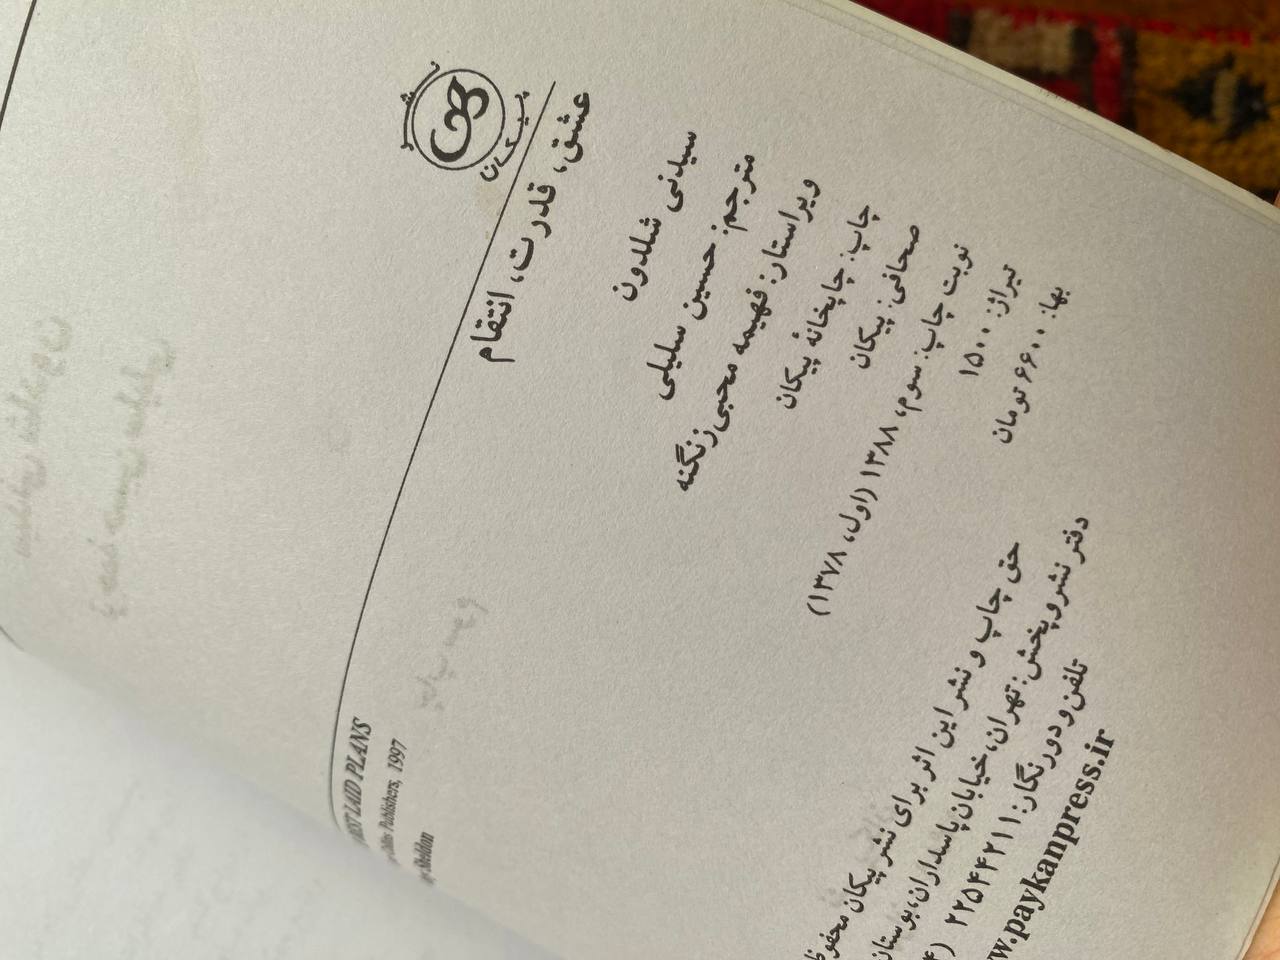 نشر
پیکان
عشق، قدرت، انتقام
BEST LAID PLANS
Publishers, 1997
Sheldon
سیدنی شلدون
مترجم: حسین سلیلی
ویراستار: فهیمه محبی‌زنگنه
چاپ: چاپخانهٔ پیکان
صحافی: پیکان
نوبت چاپ: سوم، ۱۳۸۸ (اول، ۱۳۷۸)
تیراژ: ۱۵۰۰
بها: ۶۶۰۰ تومان
حق چاپ و نشر این اثر برای نشر پیکان محفوظ
دفتر نشر و پخش: تهران، خیابان پاسداران، بوستان
تلفن و دورنگار: ۲۲۵۴۴۲۱۱
www.paykanpress.ir